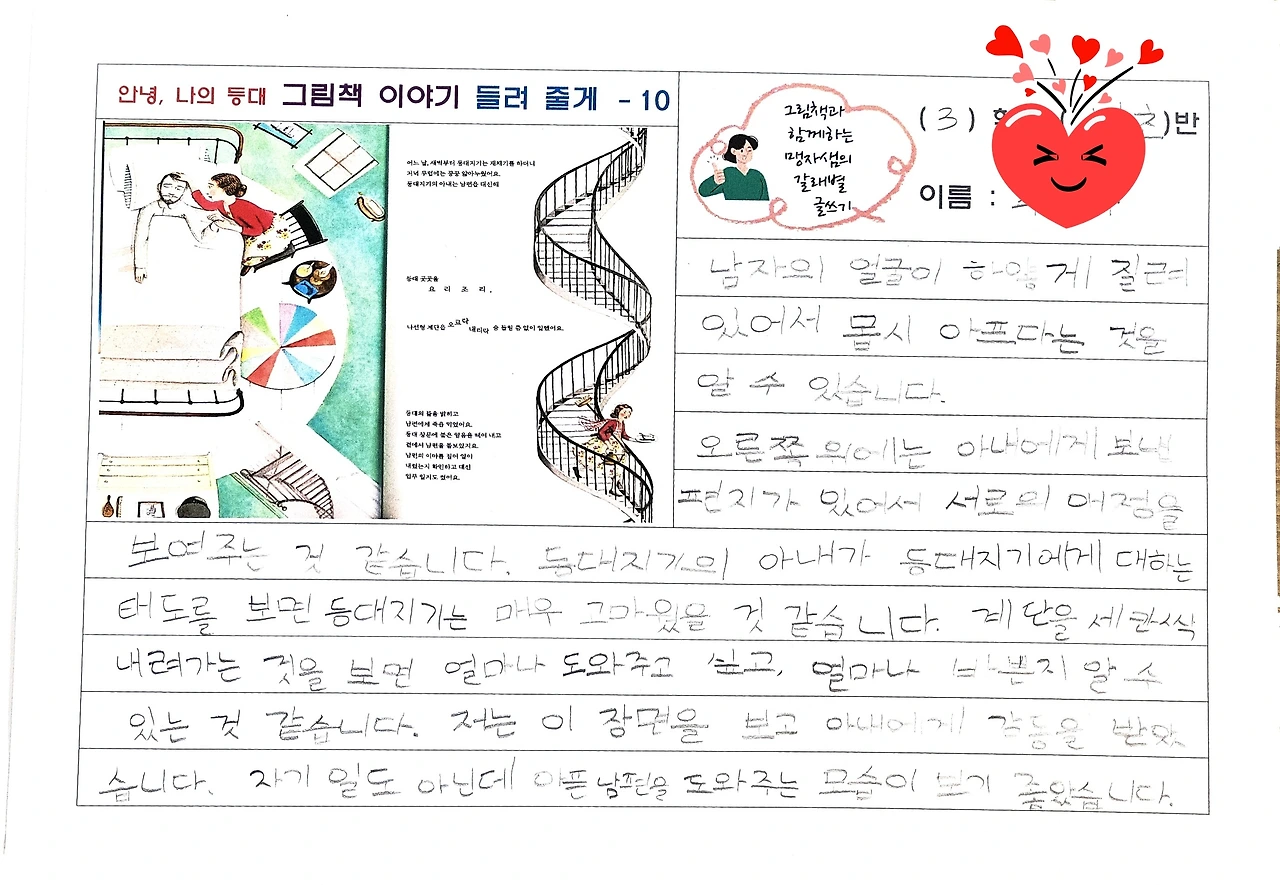 안녕, 나의 등대 그림책 이야기 들려 줄게 - 10
어느 날, 새벽부터 등대지기는 재채기를 하더니
저녁 무렵에는 끙끙 앓아누웠어요.
등대지기의 아내는 남편을 대신해
등대 곳곳을
요리조리,
나선형 계단을 오르락 내리락 숨 돌릴 틈 없이 일했어요.
등대의 불을 밝히고
남편에게 죽을 먹였어요.
등대 창문에 붙은 얼음을 떼어 내고
곁에서 남편을 돌보았지요.
남편의 이마를 짚어 열이
내렸는지 확인하고 대신
업무 일지도 썼어요.
그림책과
함께하는
맹자샘의
갈래별
글쓰기
(3)
)반
이름 :
남자의 얼굴이 하얗게 질려
있어서 몹시 아프다는 것을
알 수 있습니다.
오른쪽 위에는 아내에게 보낸
편지가 있어서 서로의 애정을
보여주는 것 같습니다. 등대지기의 아내가 등대지기에게 대하는
태도를 보면 등대지기는 매우 고마웠을 것 같습니다. 계단을 세 칸씩
내려가는 것을 보면 얼마나 도와주고 싶고, 얼마나 바쁜지 알 수
있는 것 같습니다. 저는 이 장면을 보고 아내에게 감동을 받았
습니다. 자기 일도 아닌데 아픈 남편을 도와주는 모습이 보기 좋았습니다.